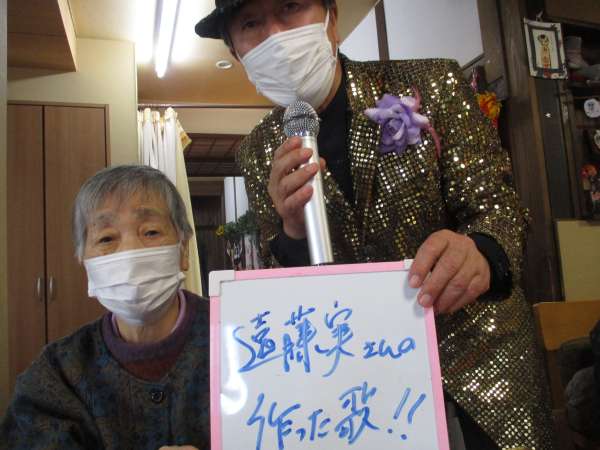 遠藤実さんの
作った歌!!